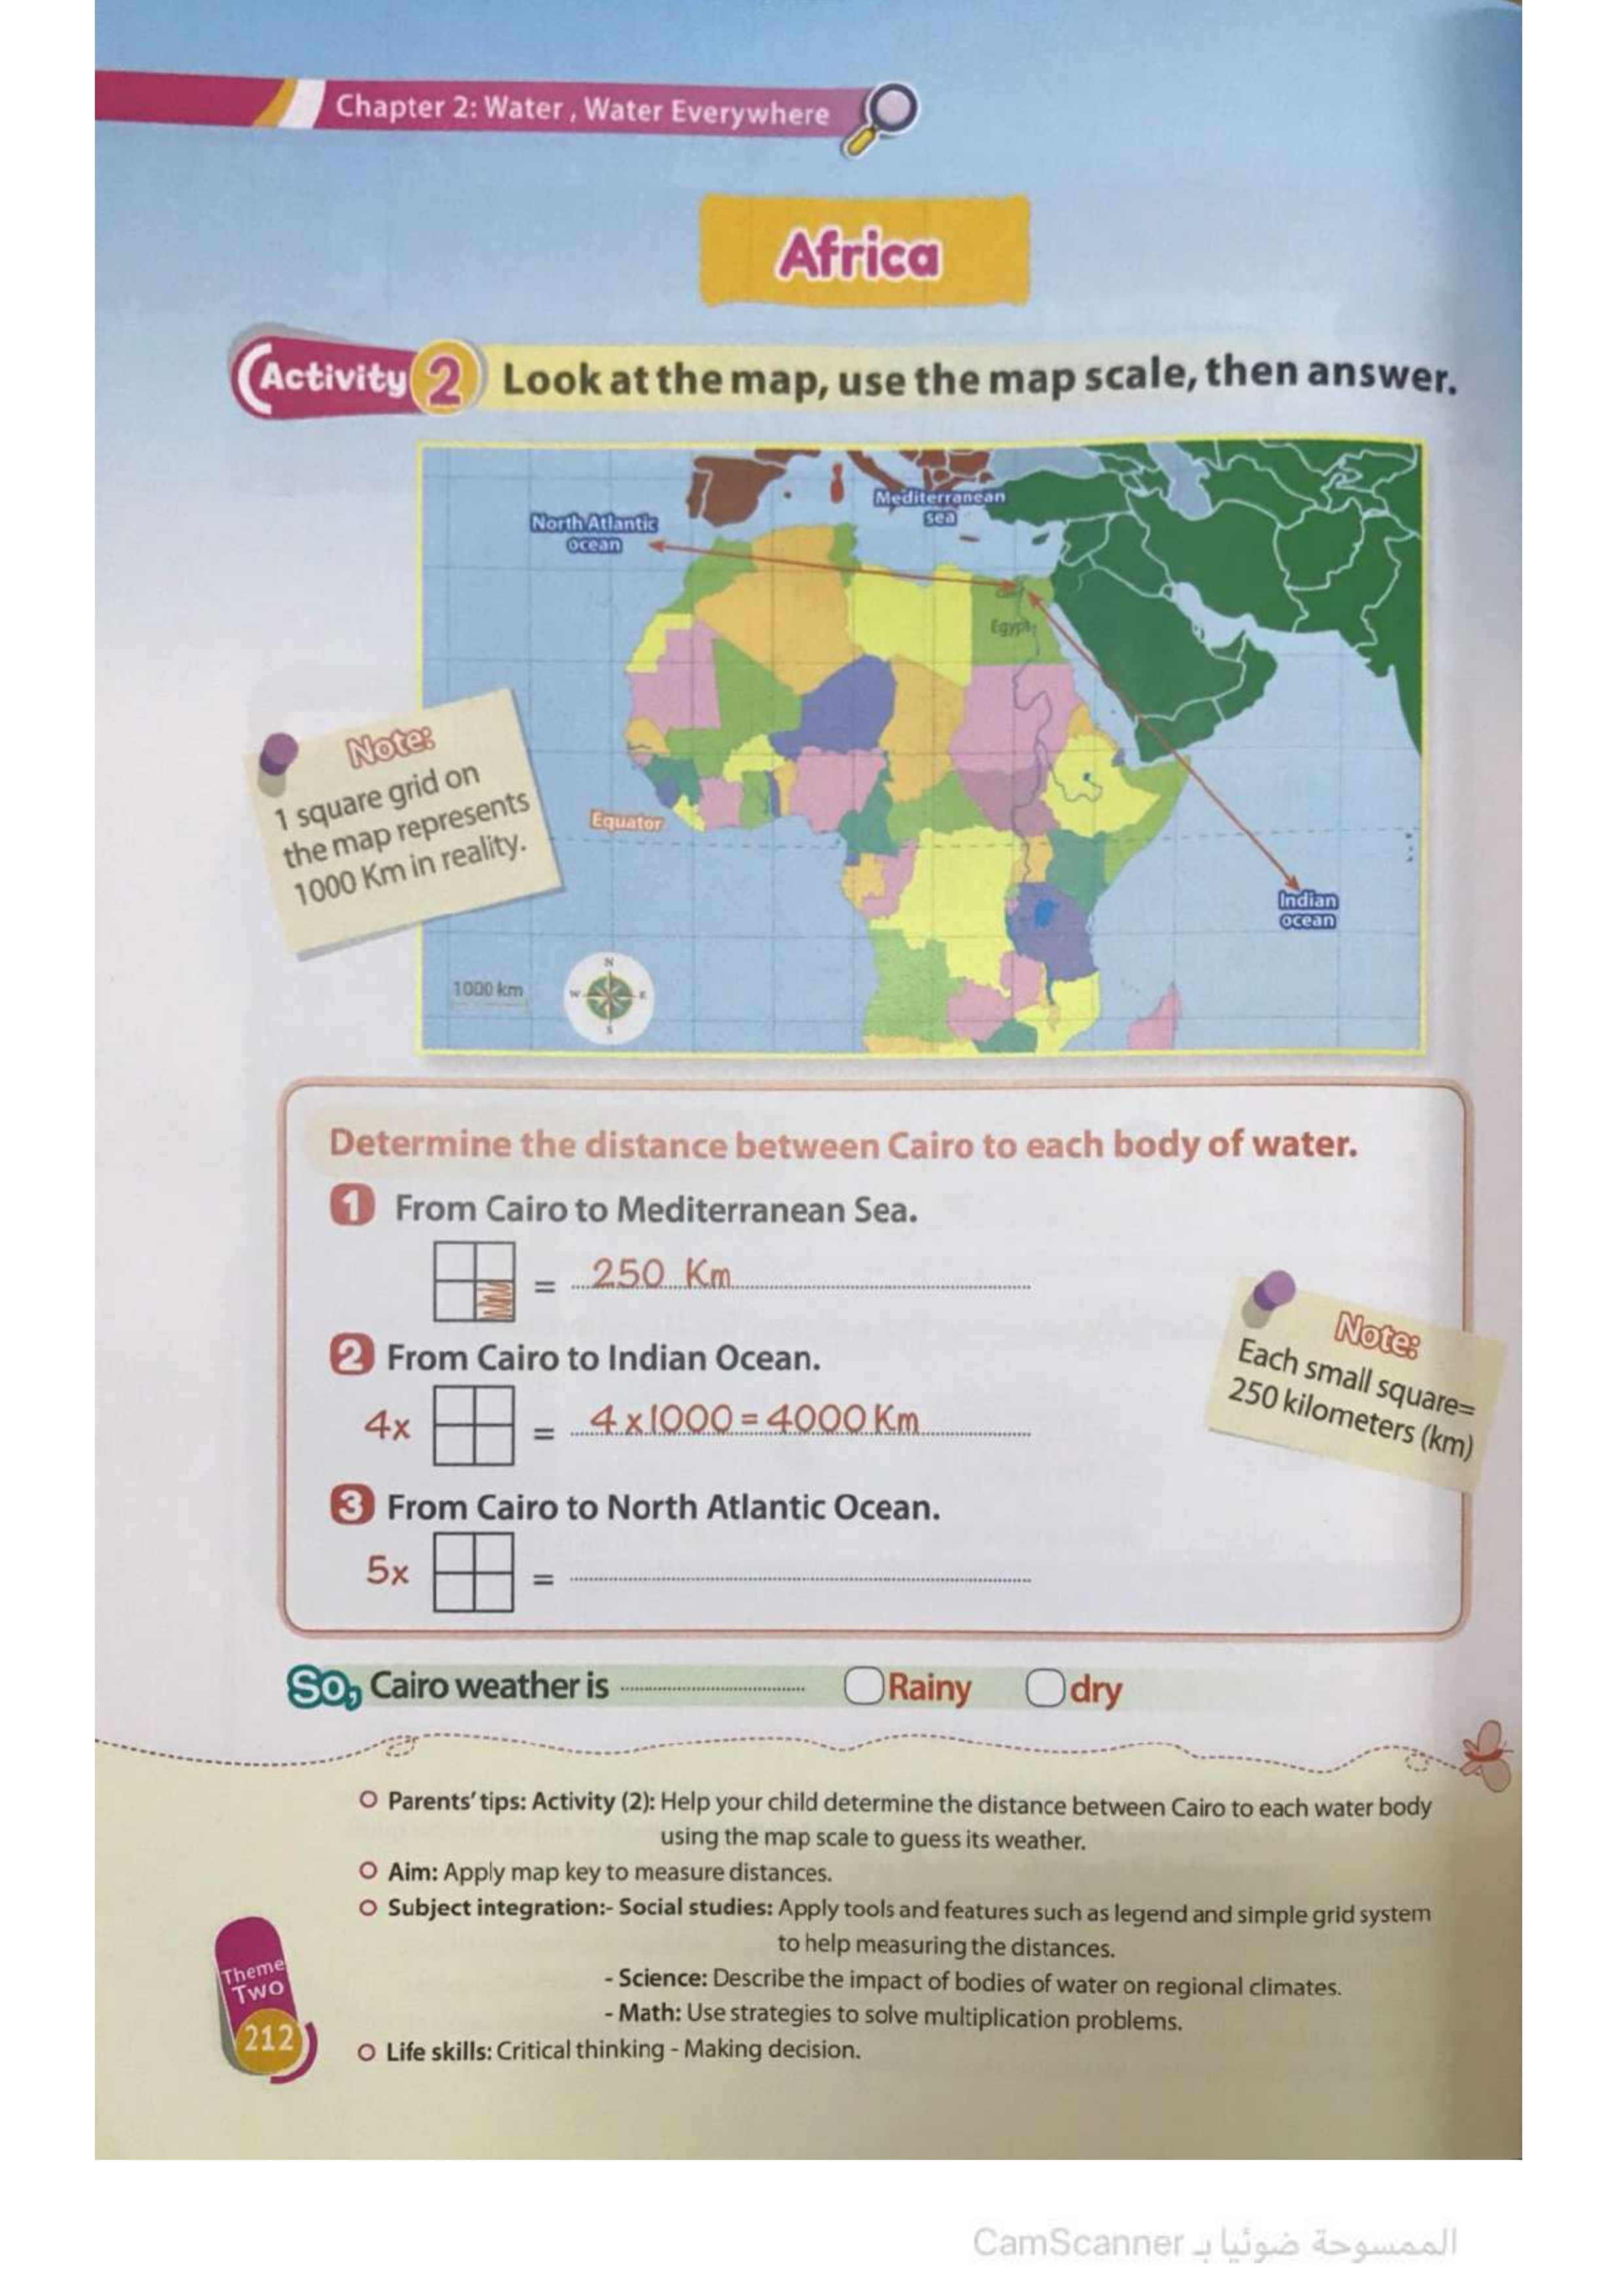 Chapter 2: Water , Water Everywhere
Africa
Activity 2 Look at the map, use the map scale, then answer.
Mediterranean
sea
North Atlantic
ocean
Egypt
Note:
1 square grid on
the map represents
1000 Km in reality.
Equator
Indian
ocean
N
W E
S
1000 km
Determine the distance between Cairo to each body of water.
1 From Cairo to Mediterranean Sea.
= 250 Km
2 From Cairo to Indian Ocean.
4x = 4x1000=4000 Km
Note:
Each small square=
250 kilometers (km)
3 From Cairo to North Atlantic Ocean.
5x =
So, Cairo weather is Rainy dry
Parents' tips: Activity (2): Help your child determine the distance between Cairo to each water body
using the map scale to guess its weather.
Aim: Apply map key to measure distances.
Subject integration:- Social studies: Apply tools and features such as legend and simple grid system
to help measuring the distances.
- Science: Describe the impact of bodies of water on regional climates.
- Math: Use strategies to solve multiplication problems.
Life skills: Critical thinking - Making decision.
Theme
Two
212
الممسوحة ضوئيا بـ CamScanner